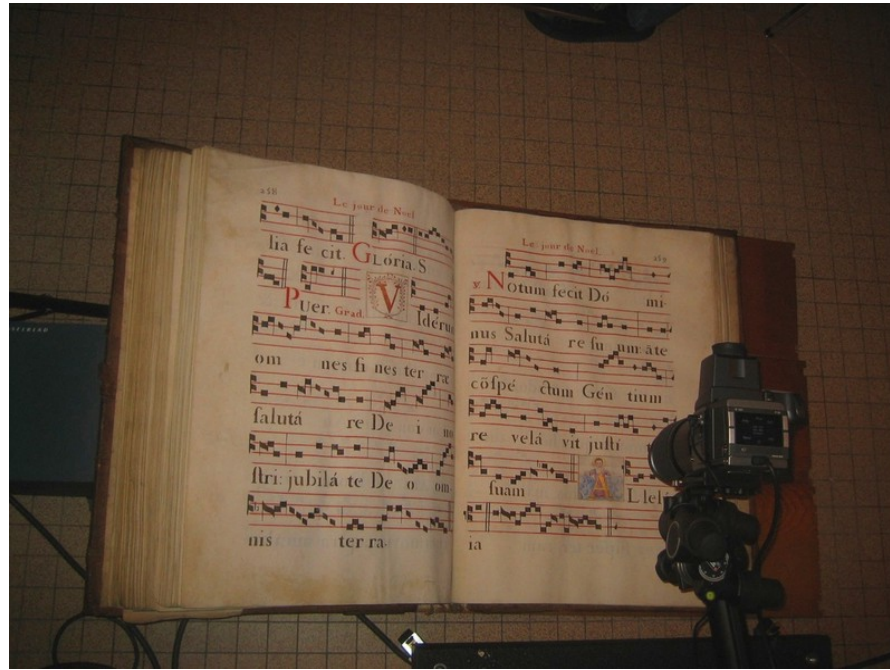 258
Le jour de Noel
lia fe cit. GLória. S
PUer. Grad. VIdérun
om nes fi nes ter ræ
salutá re De i no
stri: jubilá te De o om
nis ter ra.
Le jour de Noel. 259
℣. NOtum fecit Dó mi-
nus Salutá re su um: ate
cōspé ctum Gén tium
re velá vit justí
suam ALlelú
ia